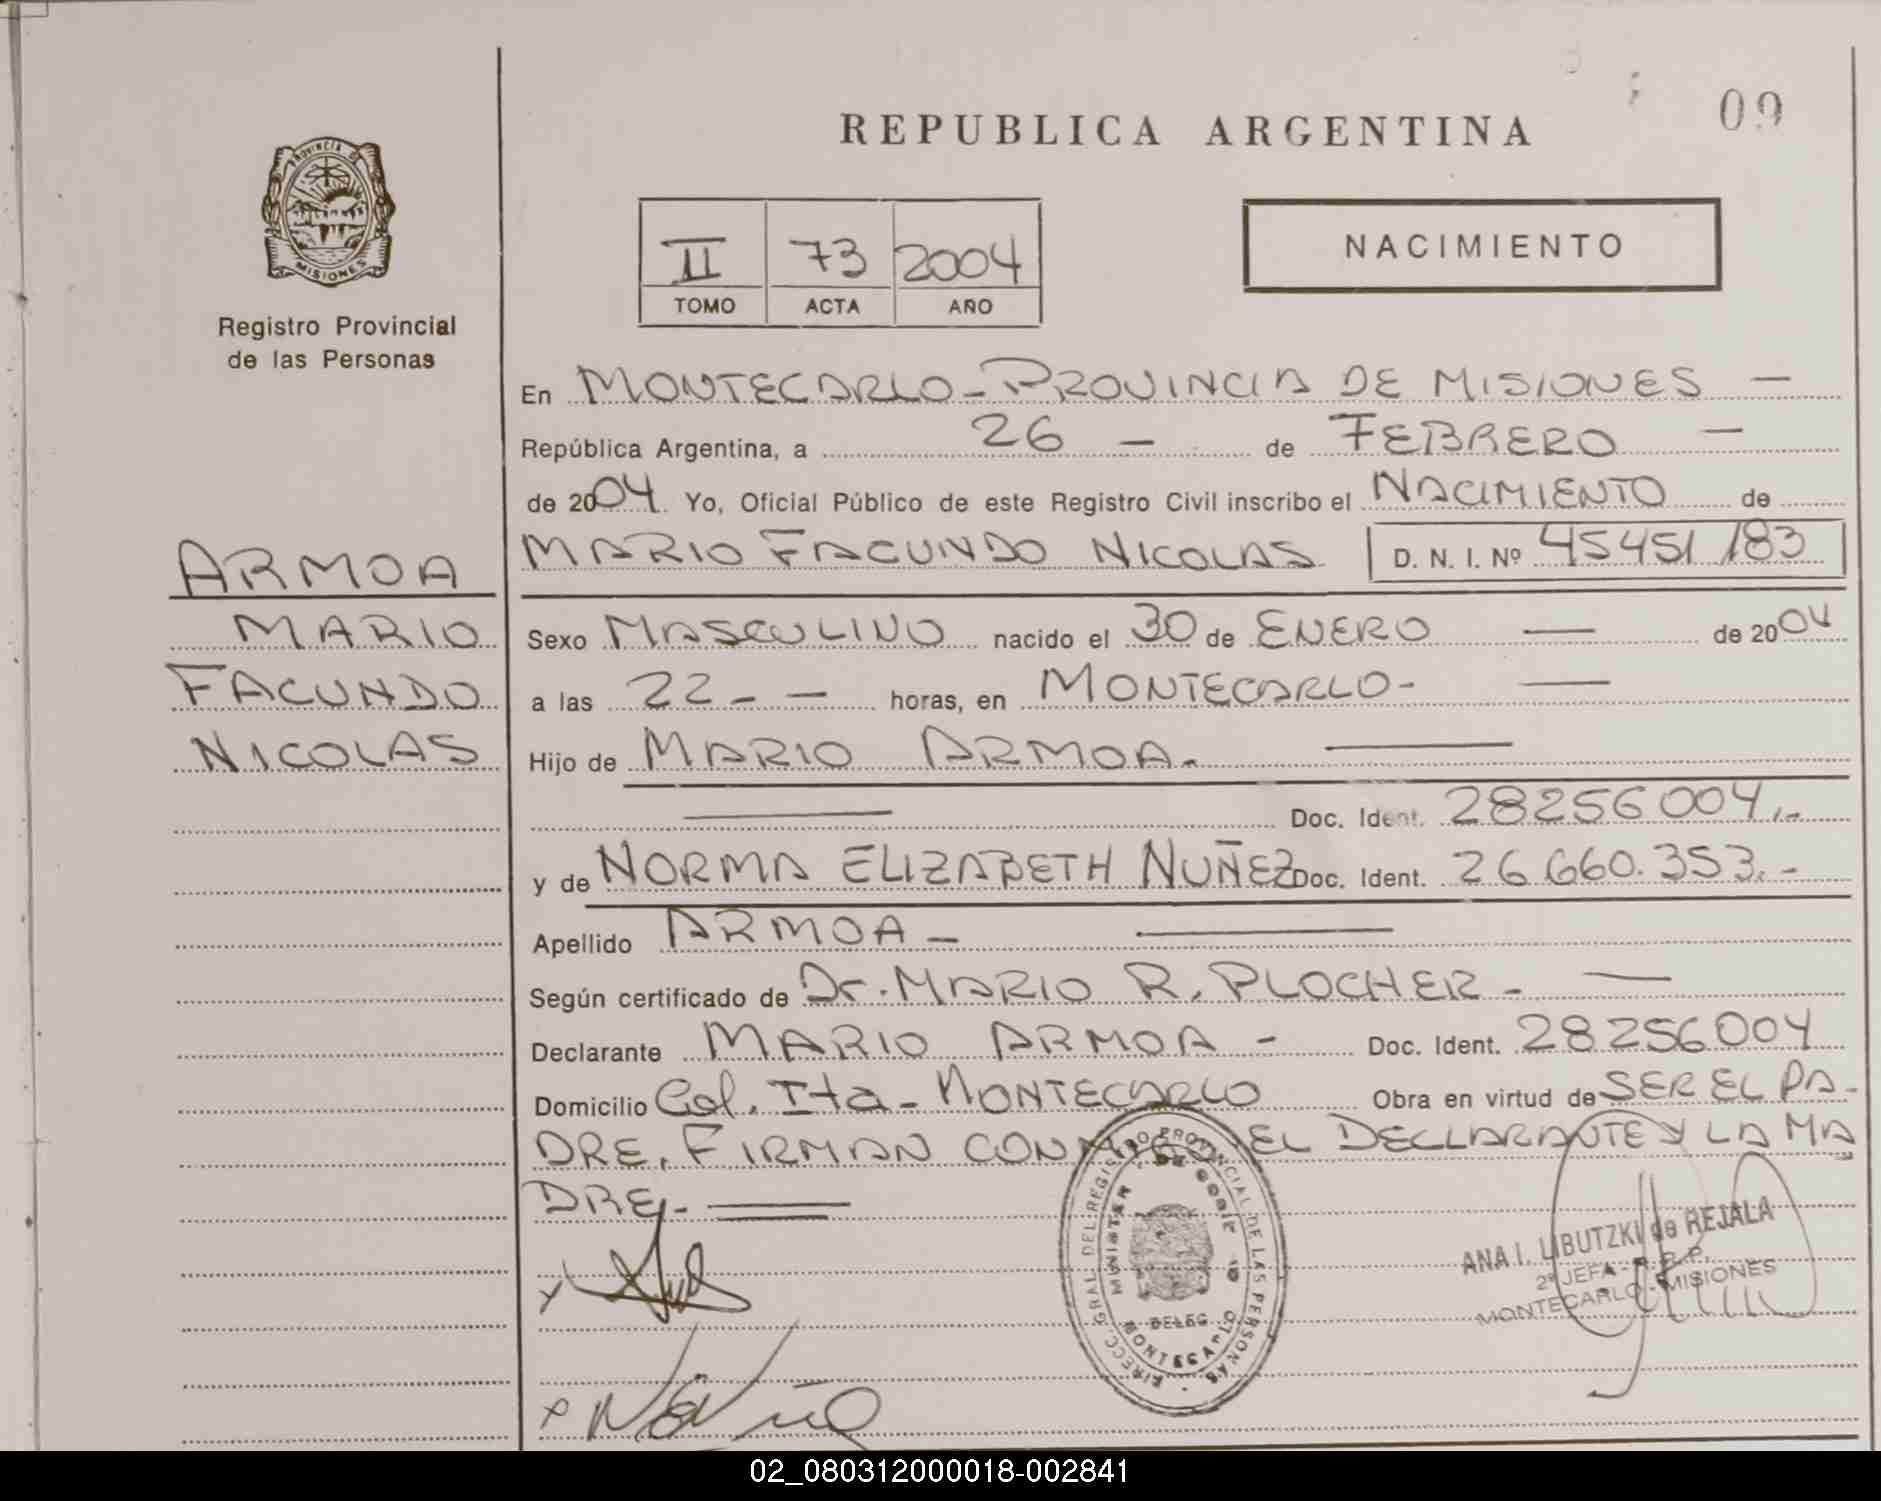 REPUBLICA ARGENTINA
09
PROVINCIA DE
MISIONES
Registro Provincial
de las Personas
II 73 2004
TOMO ACTA AÑO
NACIMIENTO
En MONTECARLO - PROVINCIA DE MISIONES -
República Argentina, a 26 - de FEBRERO -
de 2004 Yo, Oficial Público de este Registro Civil inscribo el NACIMIENTO de
MARIO FACUNDO NICOLAS D. N. I. Nº 45451183
ARMOA
MARIO
FACUNDO
NICOLAS
Sexo MASCULINO nacido el 30 de ENERO — de 2004
a las 22 - - horas, en MONTECARLO - —
Hijo de MARIO ARMOA. —
— Doc. Ident. 28256004.-
y de NORMA ELIZABETH NUÑEZ Doc. Ident. 26660.353.-
Apellido ARMOA - —
Según certificado de Dr. MARIO R. PLOCHER - —
Declarante MARIO ARMOA - Doc. Ident. 28256004
Domicilio Col. Ita - MONTECARLO Obra en virtud de SER EL PA-
DRE. FIRMAN CONMIGO EL DECLARANTE Y LA MA
DRE. —
DIRECC. GRAL DEL REGISTRO PROVINCIAL DE LAS PERSONAS
DELEG
MONTECARLO
ANA I. LIBUTZKI de REJALA
2º JEFA - R.P.
MONTECARLO - MISIONES
02_080312000018-002841